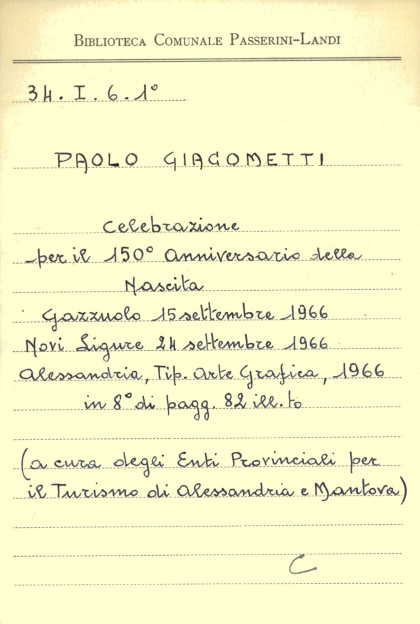 BIBLIOTECA COMUNALE PASSERINI-LANDI
34. I. 6. 1°
PAOLO GIACOMETTI
Celebrazione
per il 150° Anniversario della
Nascita
Gazzuolo 15 settembre 1966
Novi Ligure 24 settembre 1966
Alessandria, Tip. Arte Grafica, 1966
in 8° di pagg. 82 ill.to
(a cura degli Enti Provinciali per
il Turismo di Alessandria e Mantova)
C